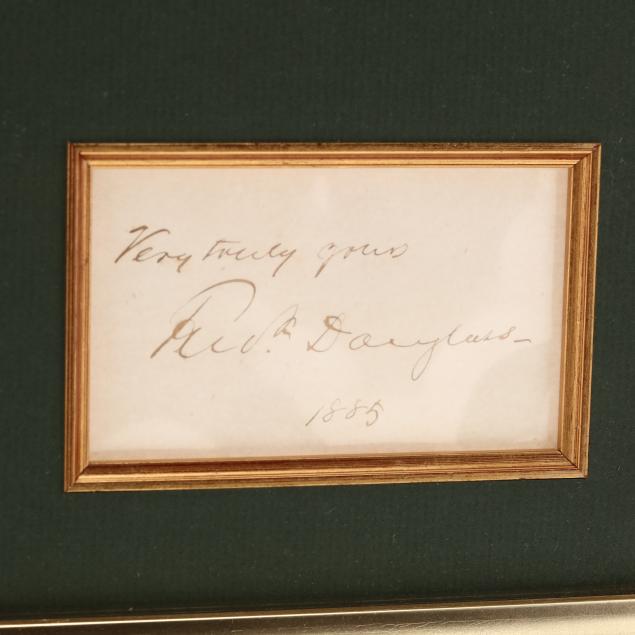 Very truly yours
Fredk Douglass
1885